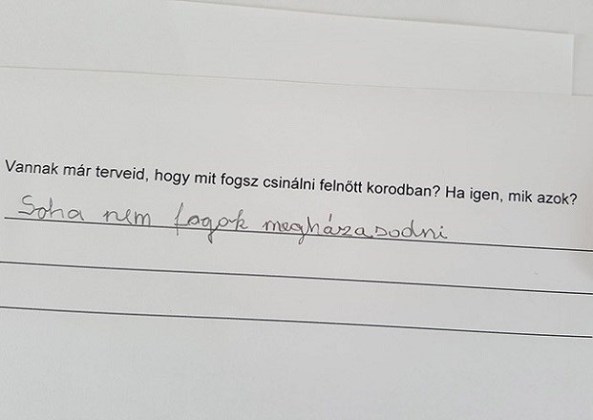 Vannak már terveid, hogy mit fogsz csinálni felnőtt korodban? Ha igen, mik azok?
Soha nem fogok megházasodni